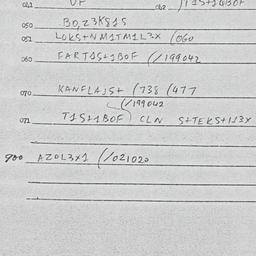 041 UP 042
050 BO,Z3K81S
051 LOKS+NM1TM1L3X (060
060 FART1S+1BOF (/199042
070 KANFLAJS+ (738 (477
(/199042
071 T1S+1BOF) CLN S+TEKS+1J3X
900 AZOL3X1 (/021020